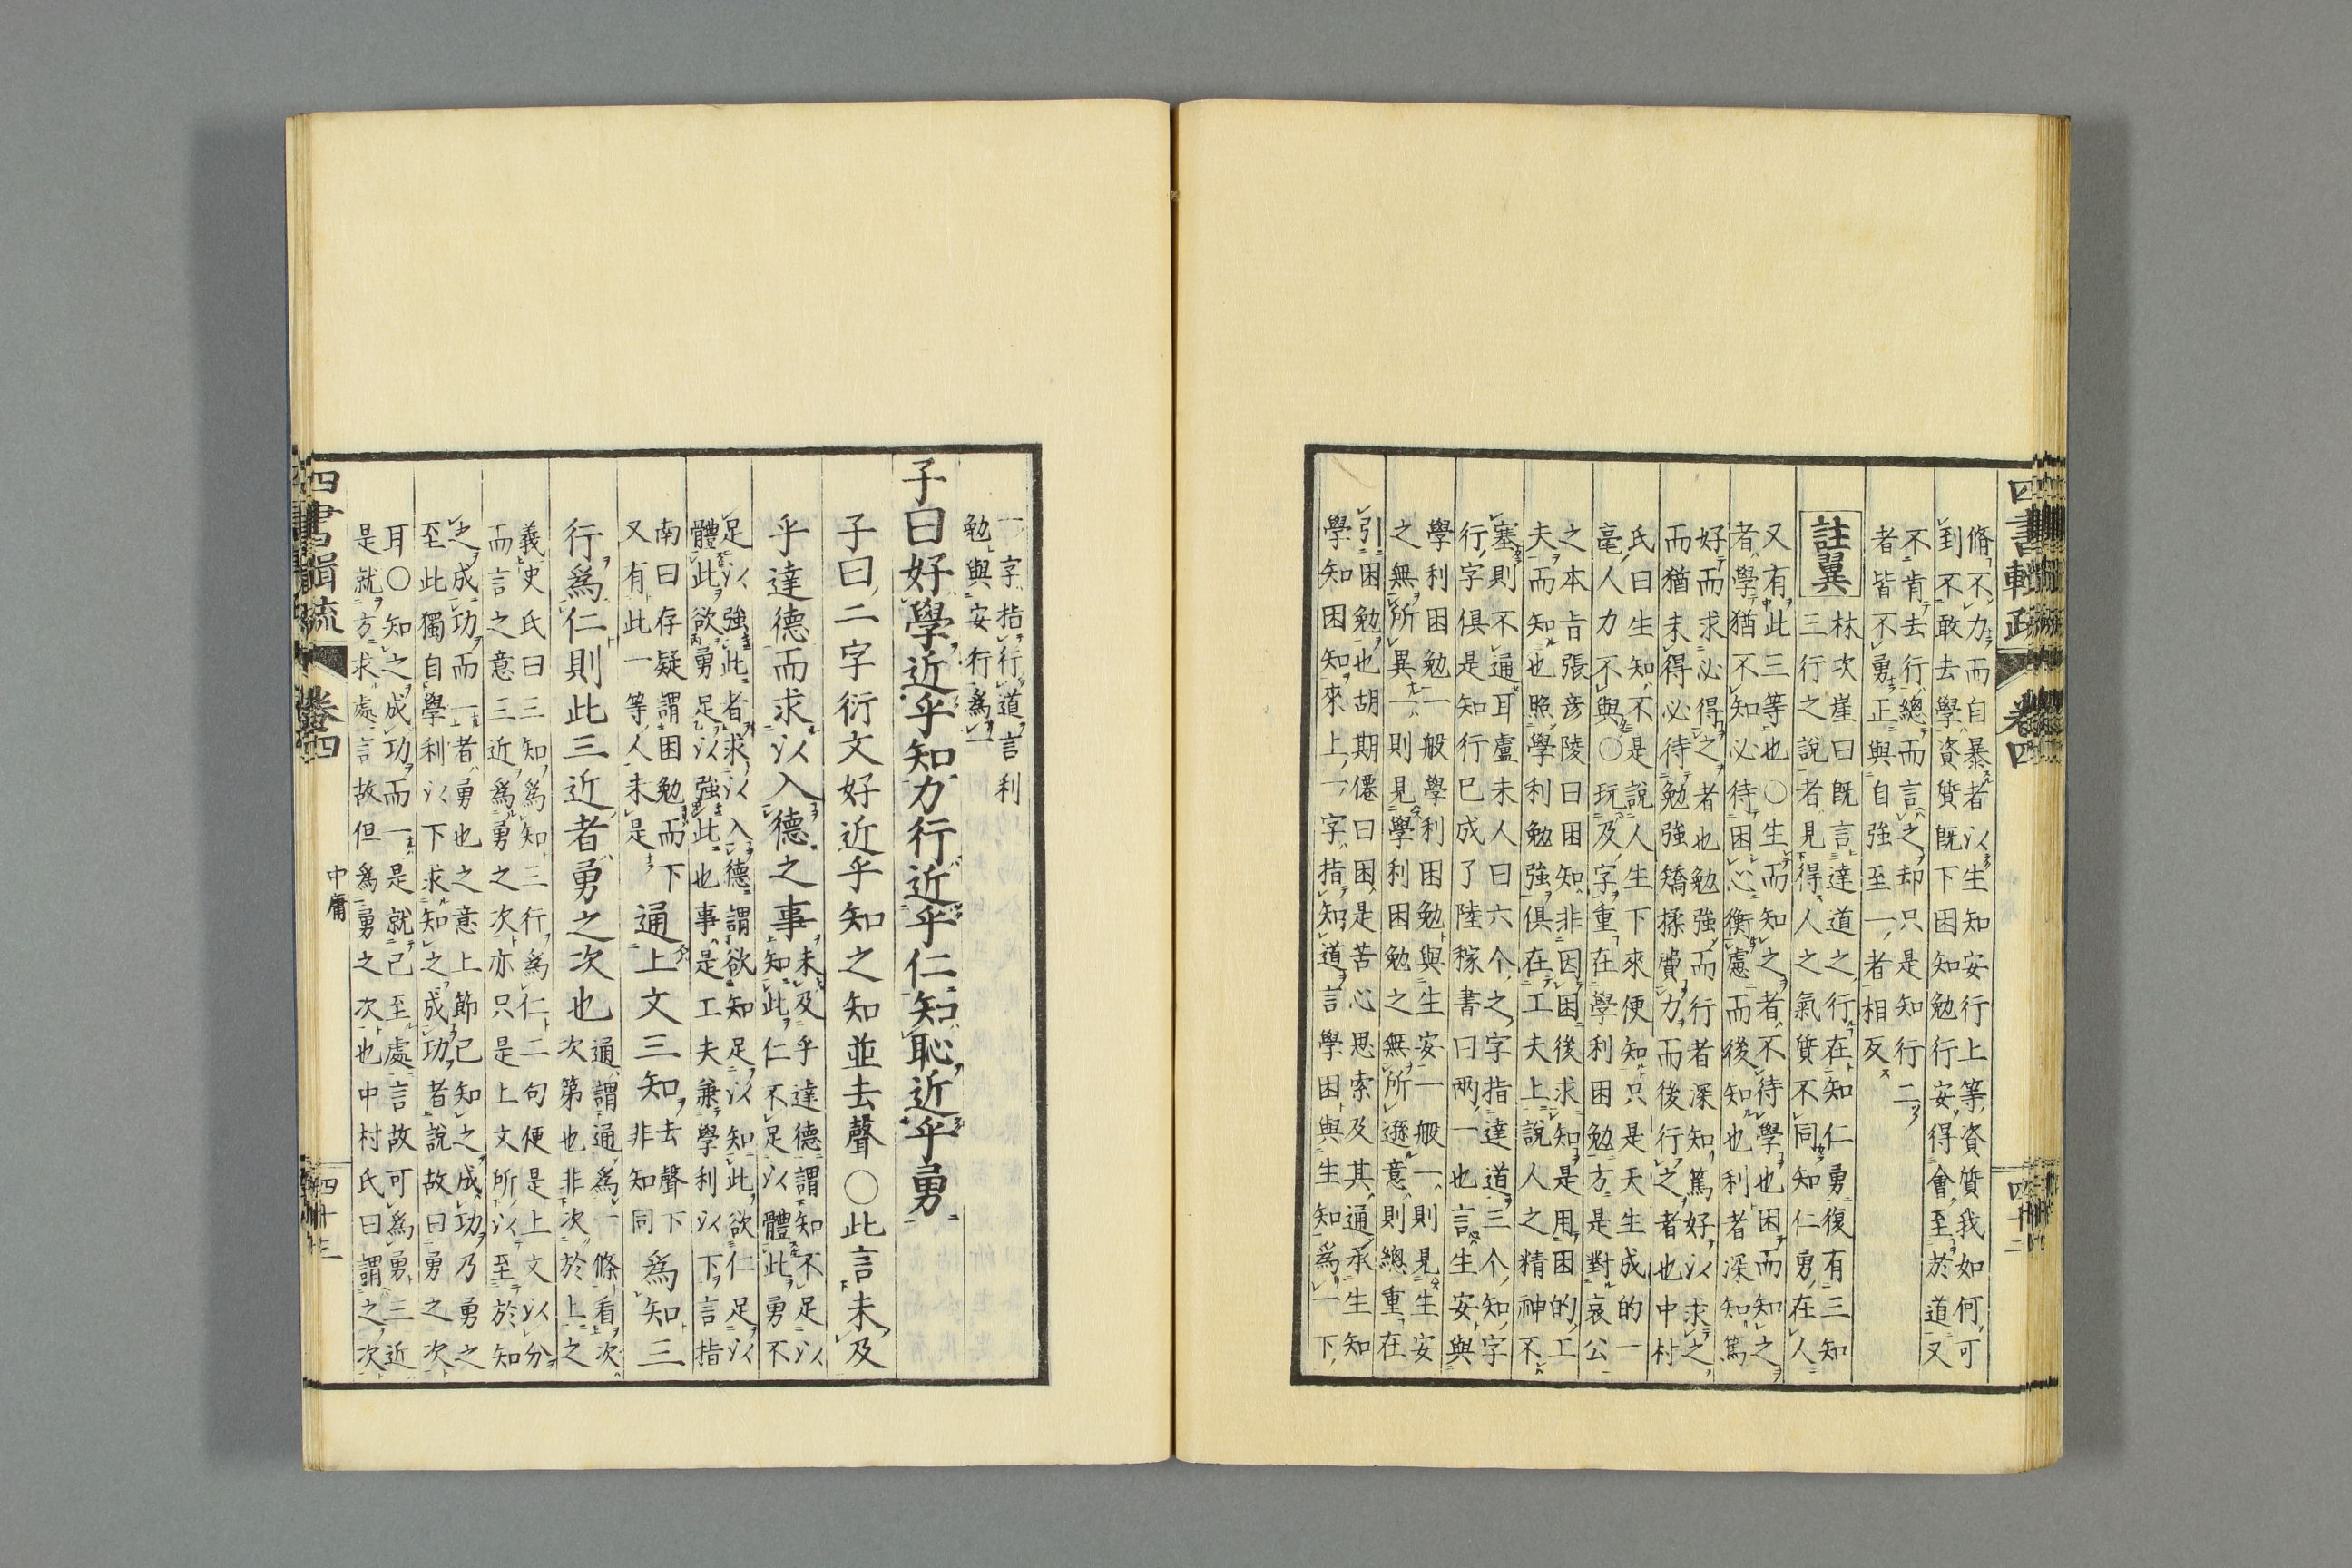 四書輯疏 卷四 四十二
脩不力而自暴者以生知安行上等資質我如何可
到不敢去學資質既下困知勉行安得會至於道又
不肯去行總而言之却只是知行二
者皆不勇正與自強至一者相反
註翼
林次崖曰既言達道之行在知仁勇復有三知
三行之說者見得人之氣質不同知仁勇在人
又有此三等也〇生而知之者不待學也困而知之
者學猶不知必待困心衡慮而後知也利者深知篤
好而求必得之者也勉強而行者深知篤好以求之
而猶未得必待勉強矯揉費力而後行之者也中村
氏曰生知不是說人生下來便知只是天生成的一
毫人力不與〇玩及字重在學利困勉方是對哀公
之本旨張彥陵曰困知非因困後求知是用困的工
夫而知也照學利勉強俱在工夫上說人之精神不
塞則不通耳盧未人曰六个之字指達道三个知字
行字俱是知行已成了陸稼書曰兩一也言生安與
學利困勉一般學利困勉與生安一般一則見生安
之無所異一則見學利困勉之無所遜意則總重在
引困勉也胡期僊曰困是苦心思索及其通承生知
學知困知來上一字指知道言學困與生知爲一下
一字指行道言利
勉與安行爲一
子曰好學近乎知力行近乎仁知恥近乎勇
子曰二字衍文好近乎知之知並去聲〇此言未及
乎達德而求以入德之事
未及乎達德謂知不足以
知此仁不足以體此勇不
足以強此者求以入德謂欲知足以知此欲仁足以
體此欲勇足以強此也事是工夫兼學利以下言指
南曰存疑謂困勉而下
又有此一等人未是
通上文三知
去聲下
非知同
爲知三
行爲仁則此三近者勇之次也
通謂通爲一條看次
次第也非次於上之
義史氏曰三知爲知三行爲仁二句便是上文以分
而言之意三近爲勇之次亦只是上文所以至於知
之成功而一者勇也之意上節已知之成功乃勇之
至此獨自學利以下求知之成功者說故曰勇之次
耳〇知之成功而一是就已至處言故可爲勇三近
是就方求處言故但爲勇之次也中村氏曰謂之次
四書輯疏 卷四 中庸 四十三